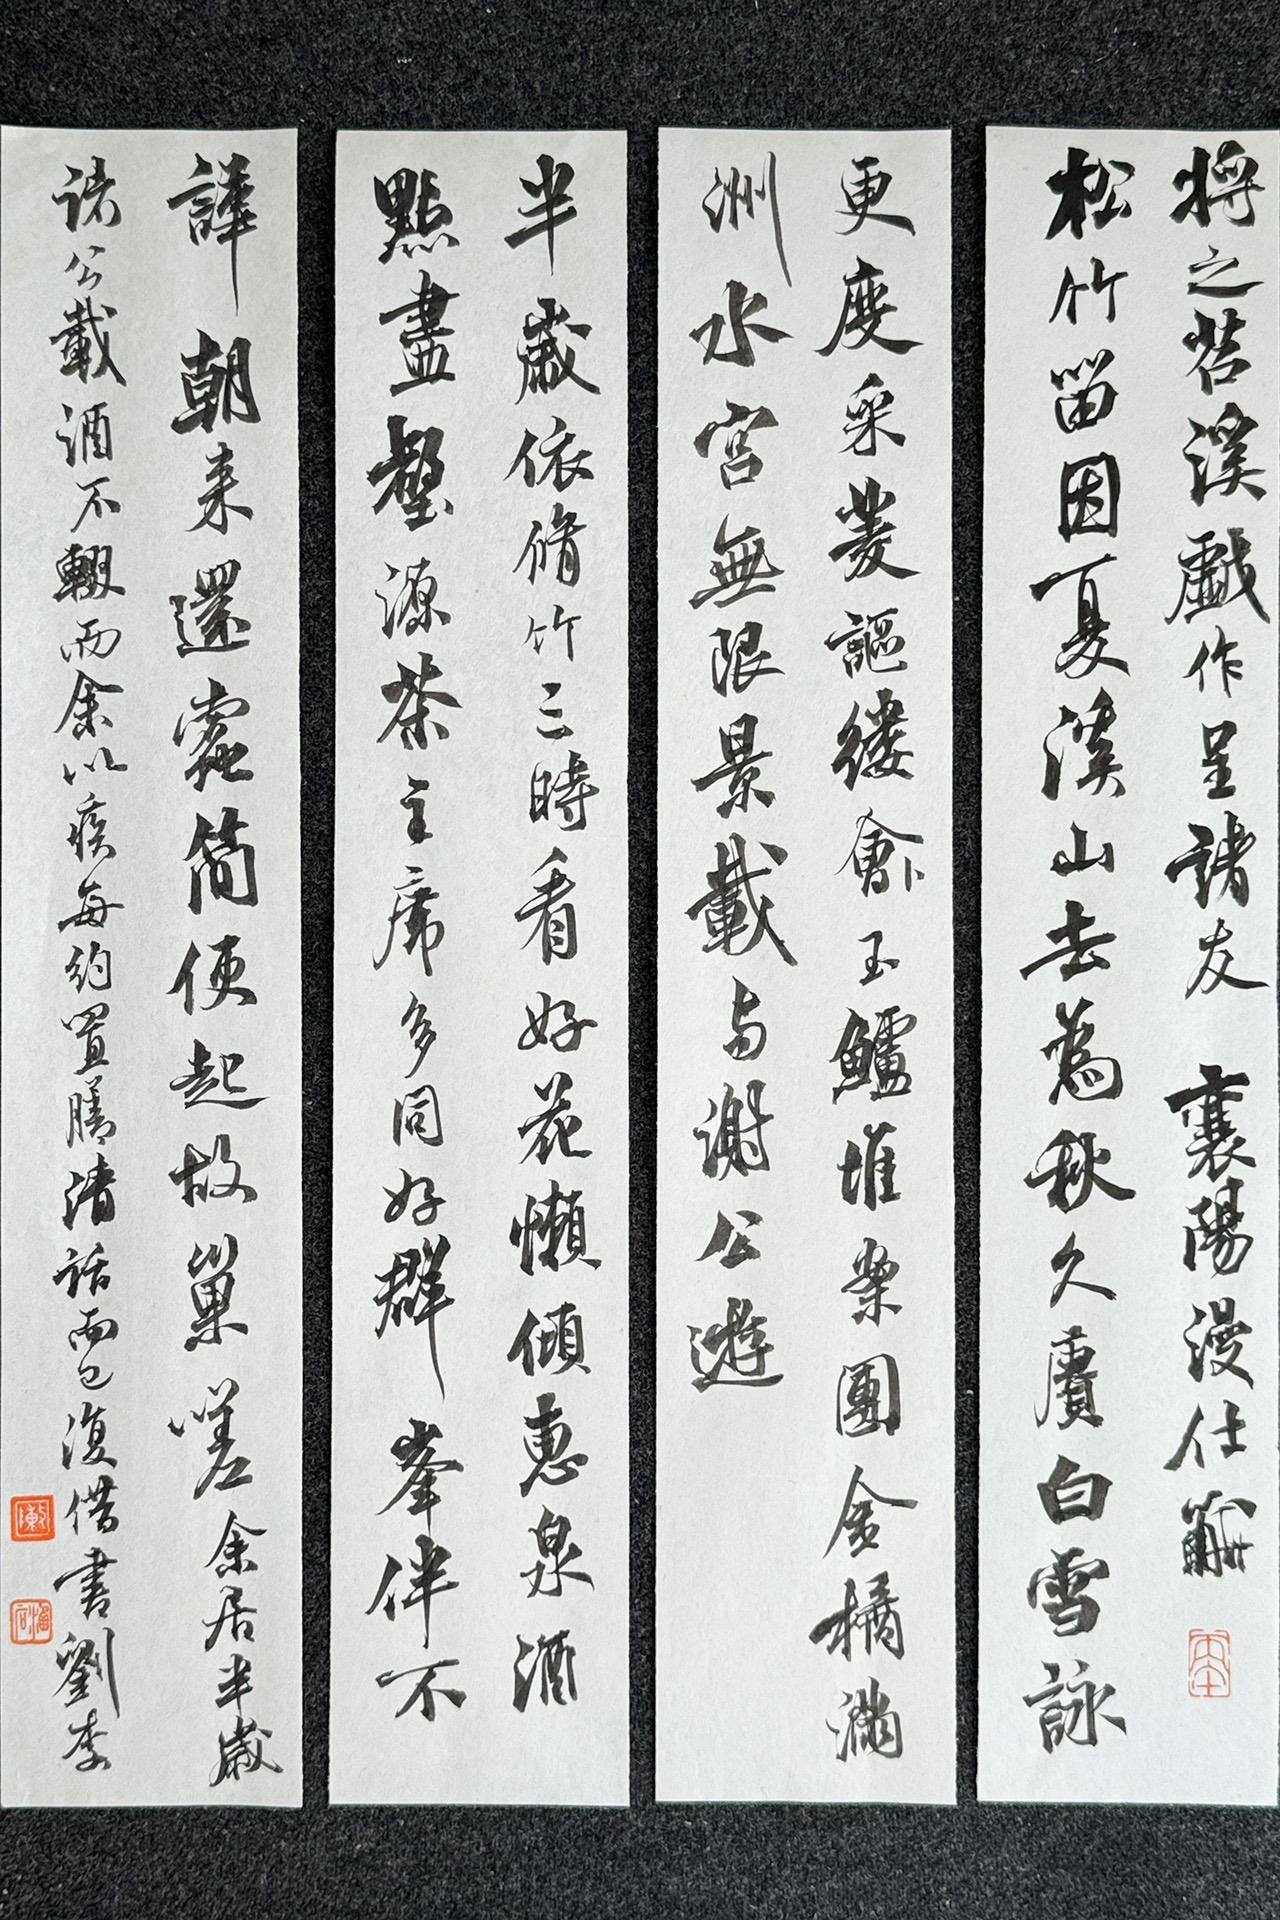 將之苕溪戲作呈諸友 襄陽漫仕黻
松竹留因夏溪山去為秋久賡白雪詠
更度采菱謳縷會卜玉鱸堆案團金橘滿
洲水宮無限景載与謝公遊
半歲依脩竹三時看好花懶傾惠泉酒
點盡壑源茶主席多同好群峯伴不
譁朝来還蠹簡便起故巢嗟余居半歲
諸公載酒不輟而余以疾每約置膳清話而已復借書劉李